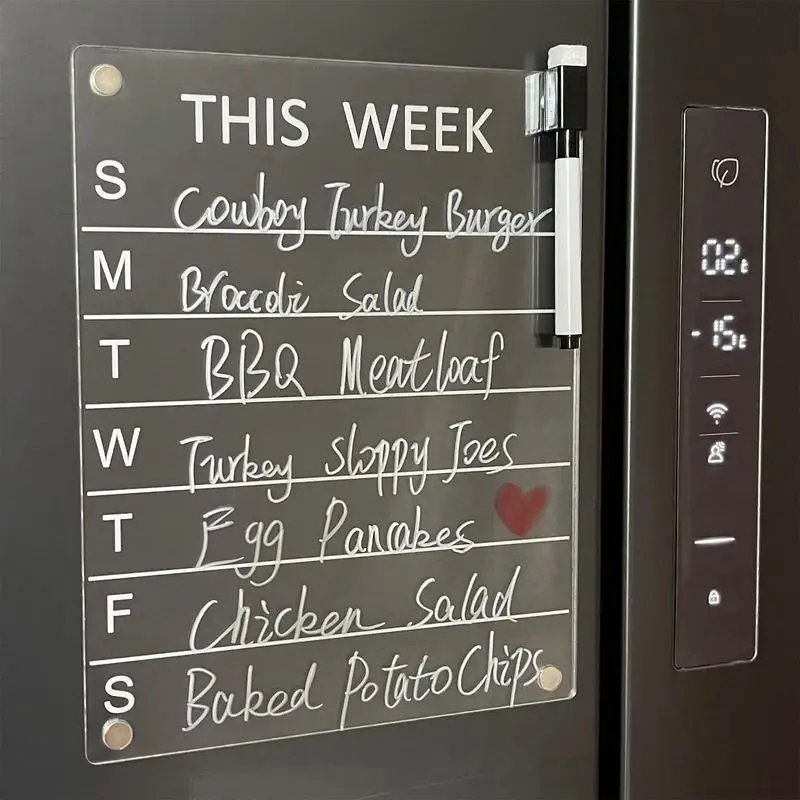 THIS WEEK
S Cowboy Turkey Burger
M Broccoli Salad
T BBQ Meatloaf
W Turkey Sloppy Joes
T Egg Pancakes
F Chicken Salad
S Baked Potato Chips
02
-15